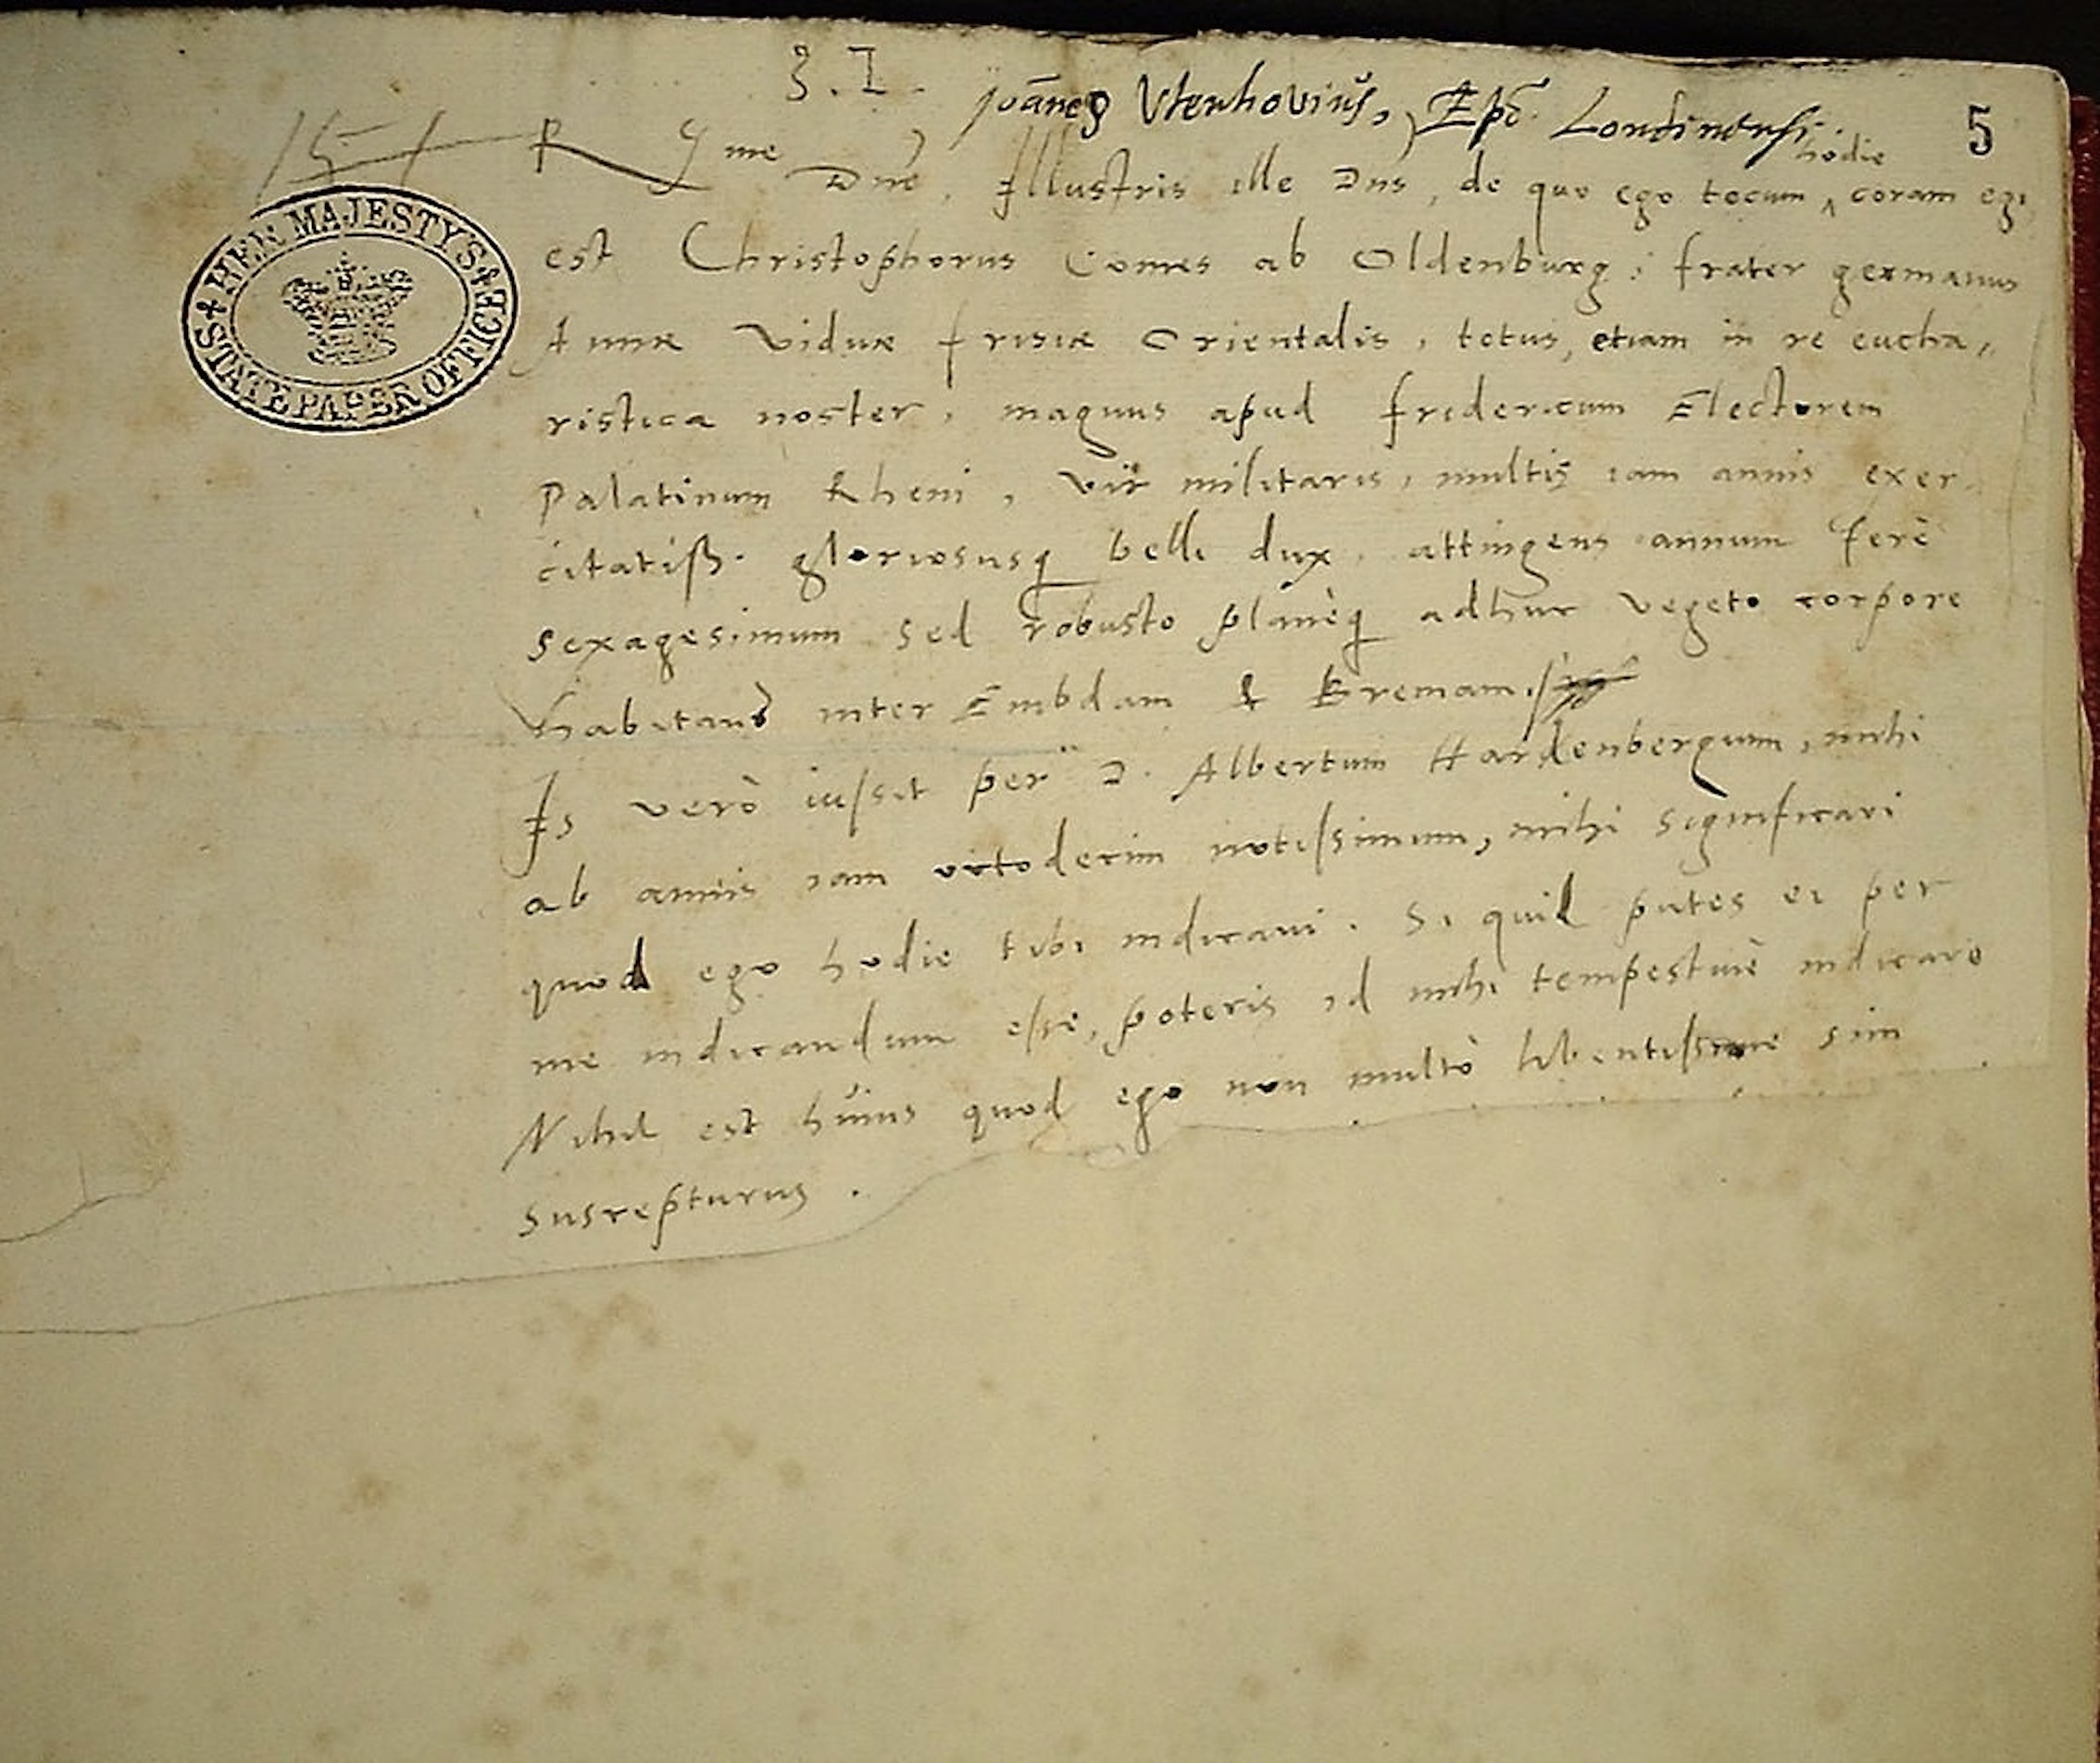 3. I.
Joānes Vtenhoviꝰ, Epō. Londinensi.
5
R me Dnē, Illustris ille Dns, de quo ego tecum ^ hodie coram egi,
est Christophorus Comes ab Oldenburg, frater germanus
Annæ viduæ frisiæ Orientalis, totus, etiam in re eucha,,
ristica noster, magnus apud fridericum Electorem
Palatinum Rheni, vir militaris, multis iam annis exer-
citatiß. gloriosusq belli dux, attingens annum ferè
sexagesimum sed robusto planèq adhuc vegeto corpore
habitans inter Embdam & Bremam.
Is verò iussit per D. Albertum Hardenbergum, mihi
ab annis iam octodecim notissimum, mihi significari
quod ego hodie tibi indicavi. Si quid putes ei per
me indicandum esse, poteris id mihi tempestivè indicare
Nihil est huius quod ego non multò libentissimè sim
suscepturus.
HER MAJESTY'S
STATE PAPER OFFICE